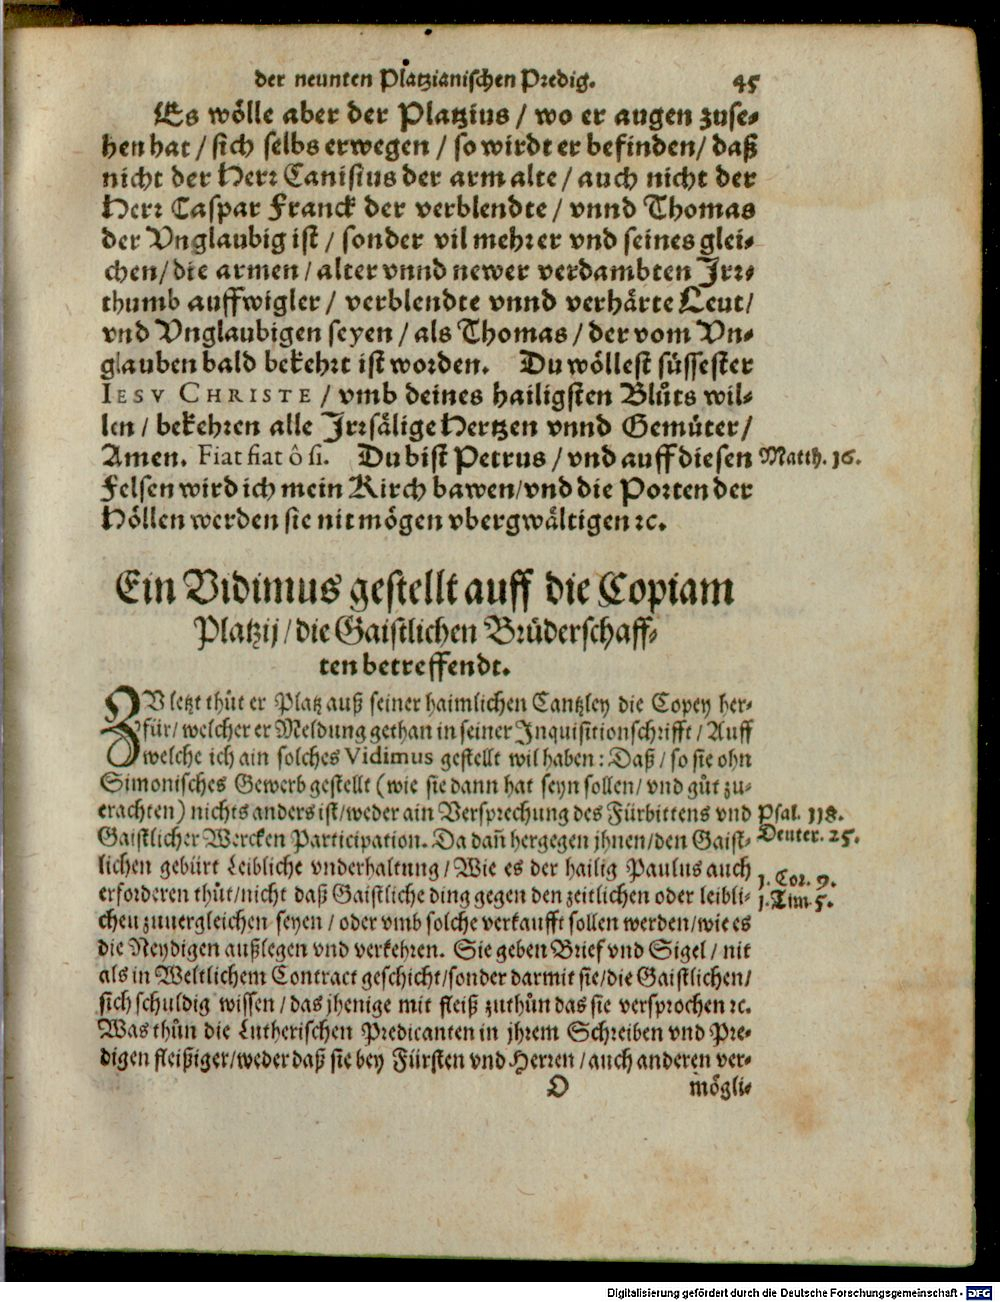 der neunten Platzianischen Predig. 45
Es wölle aber der Platzius / wo er augen zuse-
hen hat / sich selbs erwegen / so wirdt er befinden / daß
nicht der Herr Canisius der arm alte / auch nicht der
Herr Caspar Franck der verblendte / vnnd Thomas
der Vnglaubig ist / sonder vil mehr er vnd seines glei-
chen / die armen / alter vnnd newer verdambten Irr-
thumb auffwigler / verblendte vnnd verhärte Leut /
vnd Vnglaubigen seyen / als Thomas / der vom Vn-
glauben bald bekehrt ist worden. Du wöllest süssester
IESV CHRISTE / vmb deines hailigsten Blůts wil-
len / bekehren alle Irrsälige Hertzen vnnd Gemüter /
Amen. Fiat fiat ô si. Du bist Petrus / vnd auff diesen Matth. 16.
Felsen wird ich mein Kirch bawen / vnd die Porten der
Höllen werden sie nit mögen vbergwältigen ꝛc.
Ein Vidimus gestellt auff die Copiam
Platzij / die Gaistlichen Brüderschaff-
ten betreffendt.
ZV letzt thůt er Platz auß seiner haimlichen Cantzley die Copey her-
für / welcher er Meldung gethan in seiner Inquisitionschrifft / Auff
welche ich ain solches Vidimus gestellt wil haben : Daß / so sie ohn
Simonisches Gewerb gestellt (wie sie dann hat seyn sollen / vnd gůt zu-
erachten) nichts anders ist / weder ain Versprechung des Fürbittens vnd Psal. 118.
Gaistlicher Wercken Participation. Da dañ hergegen jhnen / den Gaist- Deuter. 25.
lichen gebürt Leibliche vnderhaltung / Wie es der hailig Paulus auch 1. Cor. 9.
erforderen thůt / nicht daß Gaistliche ding gegen den zeitlichen oder leibli- 1. Tim. 5.
chen zuuergleichen seyen / oder vmb solche verkaufft sollen werden / wie es
die Neydigen außlegen vnd verkehren. Sie geben Brief vnd Sigel / nit
als in Weltlichem Contract geschicht / sonder darmit sie / die Gaistlichen /
sich schuldig wissen / das jhenige mit fleiß zuthůn das sie versprochen ꝛc.
Was thůn die Lutherischen Predicanten in jhrem Schreiben vnd Pre-
digen fleißiger / weder daß sie bey Fürsten vnd Herren / auch anderen ver-
O mögli-
Digitalisierung gefördert durch die Deutsche Forschungsgemeinschaft - DFG